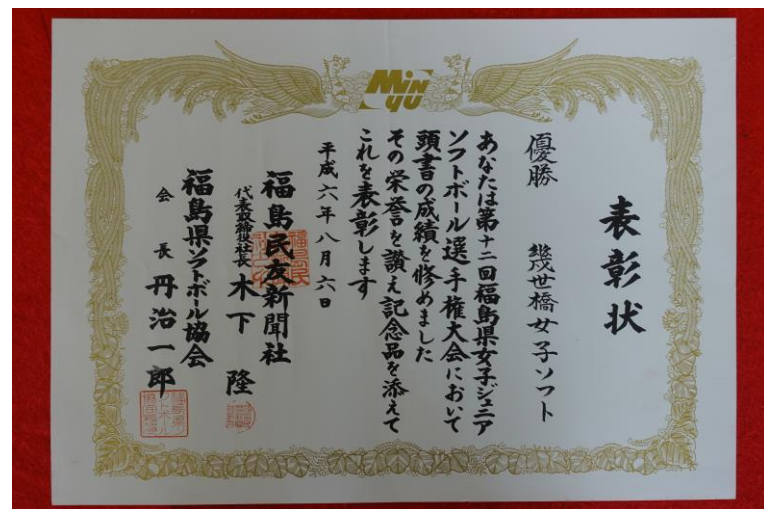 MiN
yU
表彰状
優勝 幾世橋女子ソフト
あなたは第十二回福島県女子ジュニア
ソフトボール選手権大会において
頭書の成績を修めました
その栄誉を讃え記念品を添えて
これを表彰します
平成六年八月六日
福島民友新聞社
代表取締役社長 木下隆
福島県ソフトボール協会
会長 丹治一郎